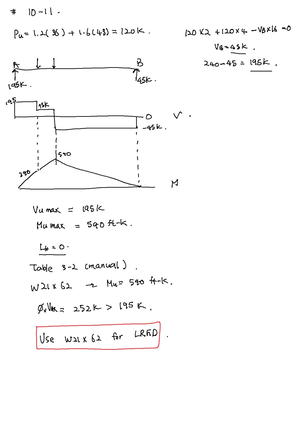 # 10-11.
Pu = 1.2(36) + 1.6(48) = 120 K.
120 X 2 + 120 X 4 - VB X 16 = 0
VB = 45 K.
240 - 45 = 195 K.
A B
195K 45K
195
75K
0 V.
-45K
540
390
M
Vu max = 195 K
Mu max = 540 ft-K.
Lb = 0.
Table 3-2 (manual).
W21 X 62 → Mu = 540 ft-K.
252 K > 195 K.
Use W21 X 62 for LRFD.